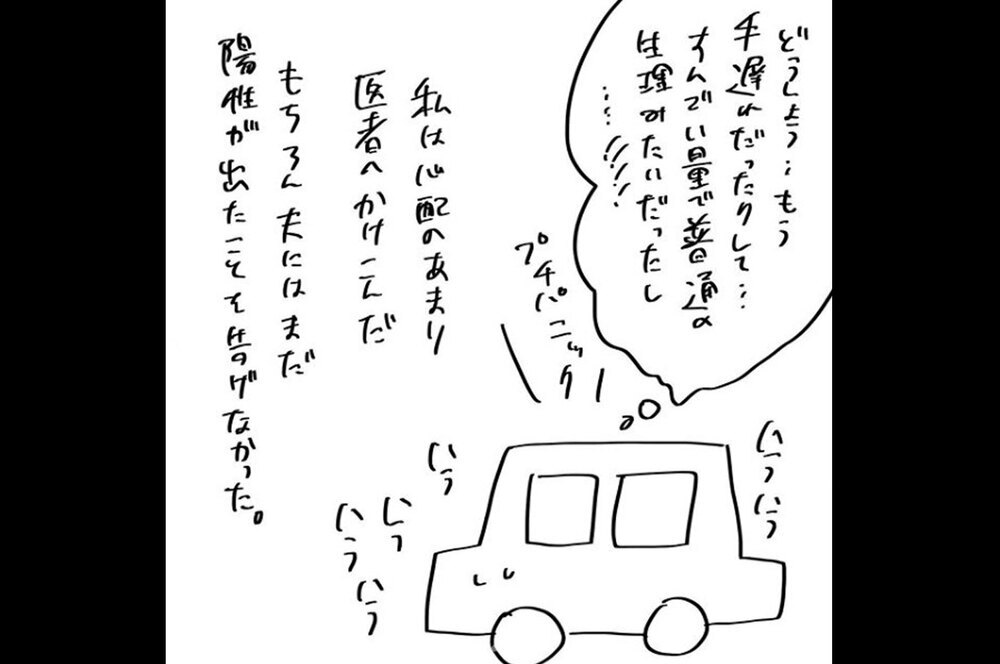 どうしよう…もう
手遅れだったりして…
すんでい量で普通の
生理みたいだったし
……!!!!
プチパニック
私は心配のあまり
医者へかけこんだ
もちろん夫にはまだ
陽性が出たことを告げなかった。